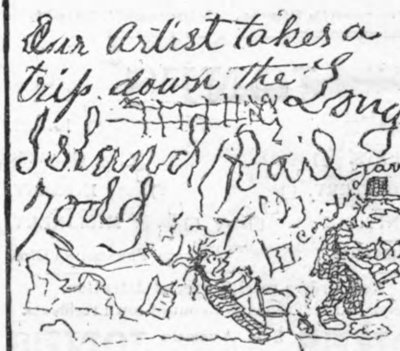 Our Artist takes a
trip down the Long
Island Rail
rodd